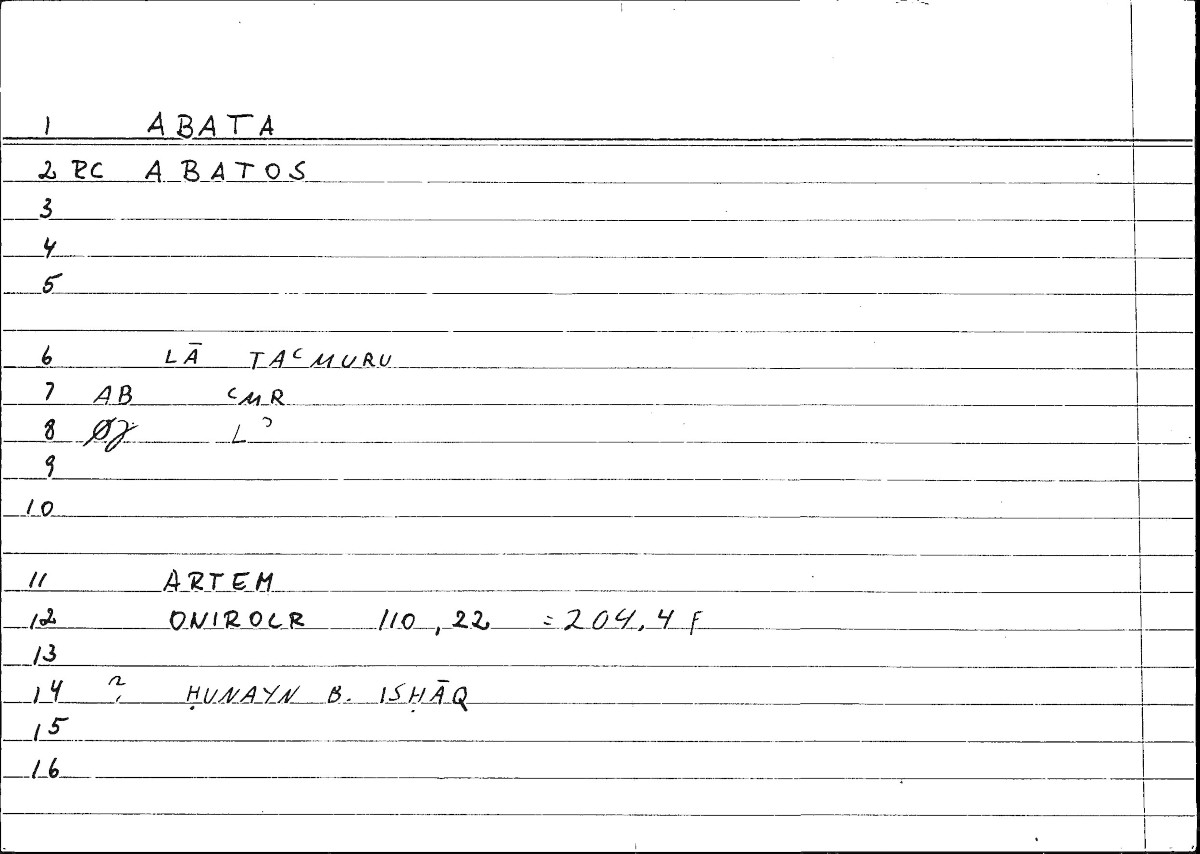 1 ABATA
2 RC ABATOS
3
4
5
6 LĀ TAʿMURU
7 AB ʿMR
8 L ʾ
9
10
11 ARTEM
12 ONIROCR 110,22 = 204,4 F
13
14 ? ḤUNAYN B. ISḤĀQ
15
16